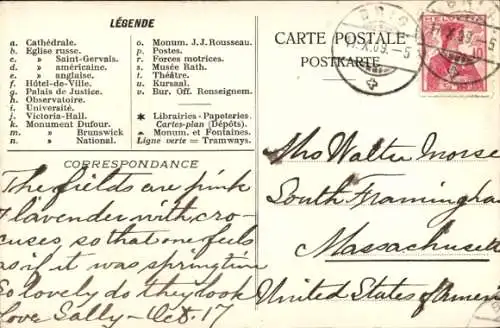 LÉGENDE
a. Cathédrale.
b. Eglise russe.
c. » Saint-Gervais.
d. » américaine.
e. » anglaise.
f. Hôtel-de-Ville.
g. Palais de Justice.
h. Observatoire.
i. Université.
j. Victoria-Hall.
k. Monument Dufour.
m. » Brunswick
n. » National.
o. Monum. J.J. Rousseau.
p. Postes.
r. Forces motrices.
s. Musée Rath.
t. Théâtre.
u. Kursaal.
v. Bur. Off. Renseignem.
* Librairies-Papeteries
Cartes-plan (Dépôts).
Monum. et Fontaines.
Ligne verte = Tramways.
CORRESPONDANCE
The fields are pink
& lavender with cro-
cuses, so that one feels
as if it was springtime
So lovely do they look
Love Sally - Oct. 17
CARTE POSTALE
POSTKARTE
BRIG
X.09.-5
HELVETIA
10
Mrs Walter Morse
South Framingham
Massachusetts
United States of America